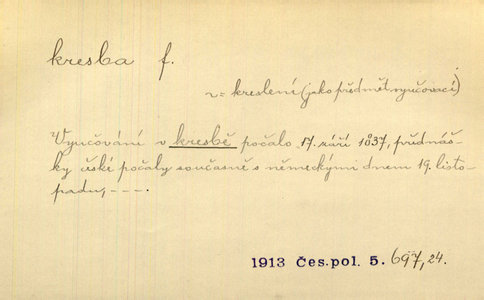 kresba f.
~ = kreslení (jako předmět vyučovací)
Vyučování v kresbě počalo 17. září 1837, přednáš-
ky české počaly současně s německými dnem 19. listo-
padu, - - - -.
1913 Čes. pol. 5. 697, 24.